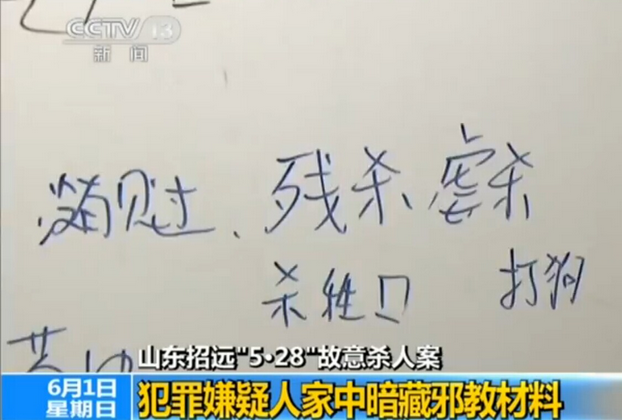 CCTV 13
新闻
没有见过、残杀虐杀
杀牲口 打狗
山东招远"5·28"故意杀人案
6月1日
星期日
犯罪嫌疑人家中暗藏邪教材料